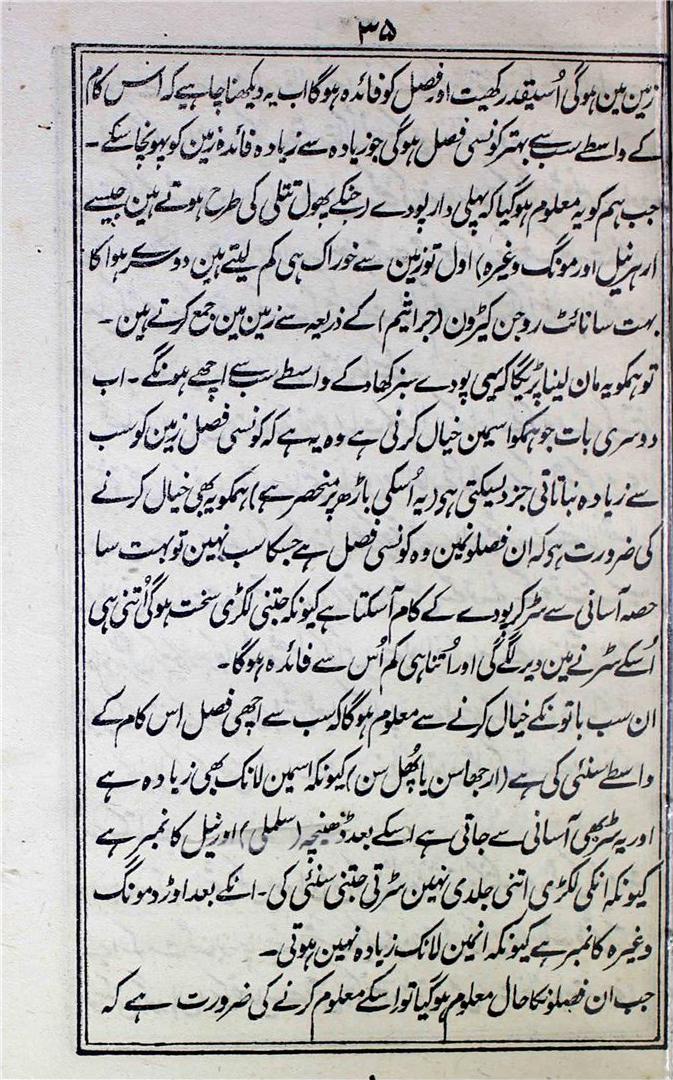 ۳۵
زمین مین ہوگی اُسیقدر کھیت اور فصل کو فائدہ ہوگا اب یہ دیکھنا چاہیے کہ اس کام
کے واسطے سب سے بہتر کونسی فصل ہوگی جو زیادہ سے زیادہ فائدہ زمین کو پہونچا سکے ۔
جب ہم کو یہ معلوم ہوگیا کہ پہلی دار پودے (جنکے پھول تتلی کی طرح ہوتے ہین جیسے
ارہر نیل اور مونگ وغیرہ) اول تو زمین سے خوراک ہی کم لیتے ہین دوسرے ہوا کا
بہت سا نائٹروجن کیڑون (جراثیم) کے ذریعہ سے زمین مین جمع کرتے ہین ۔
تو ہمکو یہ مان لینا پڑیگا کہ یہی پودے سبز کھاد کے واسطے سب سے اچھے ہونگے ۔ اب
دوسری بات جو ہمکو اسمین خیال کرنی ہے وہ یہ ہے کہ کونسی فصل زمین کو سب
سے زیادہ نباتاتی جز دیسکتی ہی (یہ اُسکی باڑھ پر منحصر ہے) ہمکو یہ بھی خیال کرنے
کی ضرورت ہو کہ ان فصلونمین وہ کونسی فصل ہے جسکا سب نہین تو بہت سا
حصہ آسانی سے سڑ کر پودے کے کام آسکتا ہے کیونکہ جتنی لکڑی سخت ہوگی اُتنی ہی
اُسکے سڑنے مین دیر لگے گی اور اُتنا ہی کم اُس سے فائدہ ہوگا ۔
ان سب باتونکے خیال کرنے سے معلوم ہوگا کہ سب سے اچھی فصل اس کام کے
واسطے سنئی کی ہے (ارجھاسن یا پھُل سن) کیونکہ اسمین لانک بھی زیادہ ہے
اور یہ سڑ بھی آسانی سے جاتی ہے اسکے بعد (سلملی) اور نیل کا نمبر ہے
کیونکہ انکی لکڑی اتنی جلدی نہین سڑتی جتنی سنئی کی ۔ انکے بعد اوڑد مونگ
وغیرہ کا نمبر ہے کیونکہ انمین لانک زیادہ نہین ہوتی ۔
جب ان فصلونکا حال معلوم ہوگیا تو اسکے معلوم کرنے کی ضرورت ہے کہ